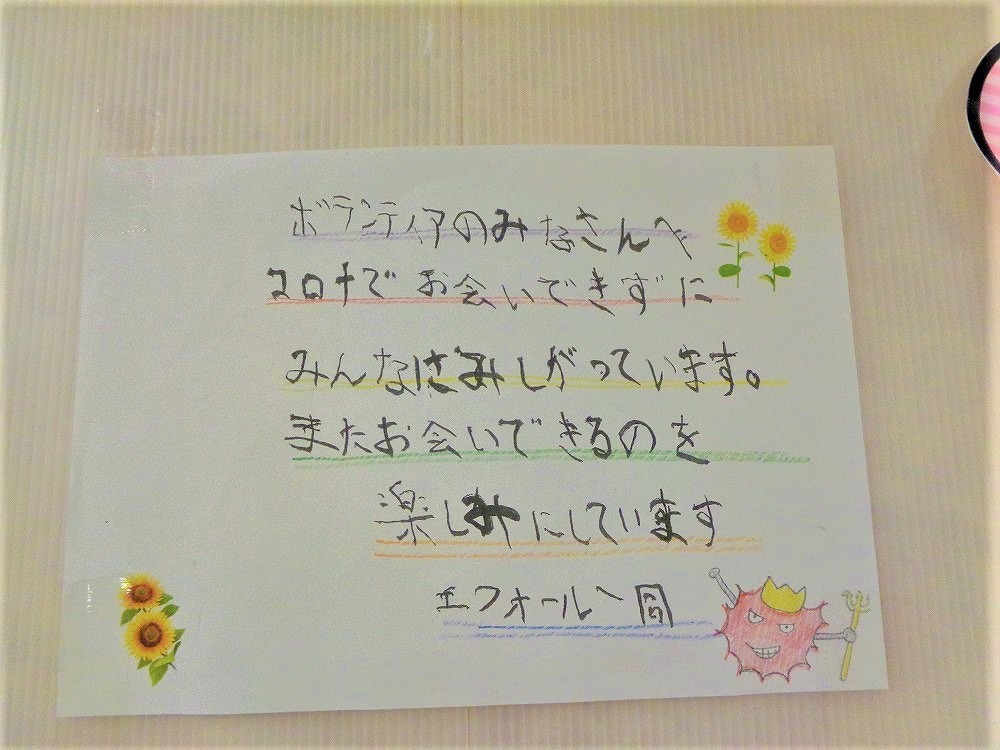 ボランティアのみなさんへ
コロナでお会いできずに
みんなさみしがっています。
またお会いできるのを
楽しみにしています
エフォール一同